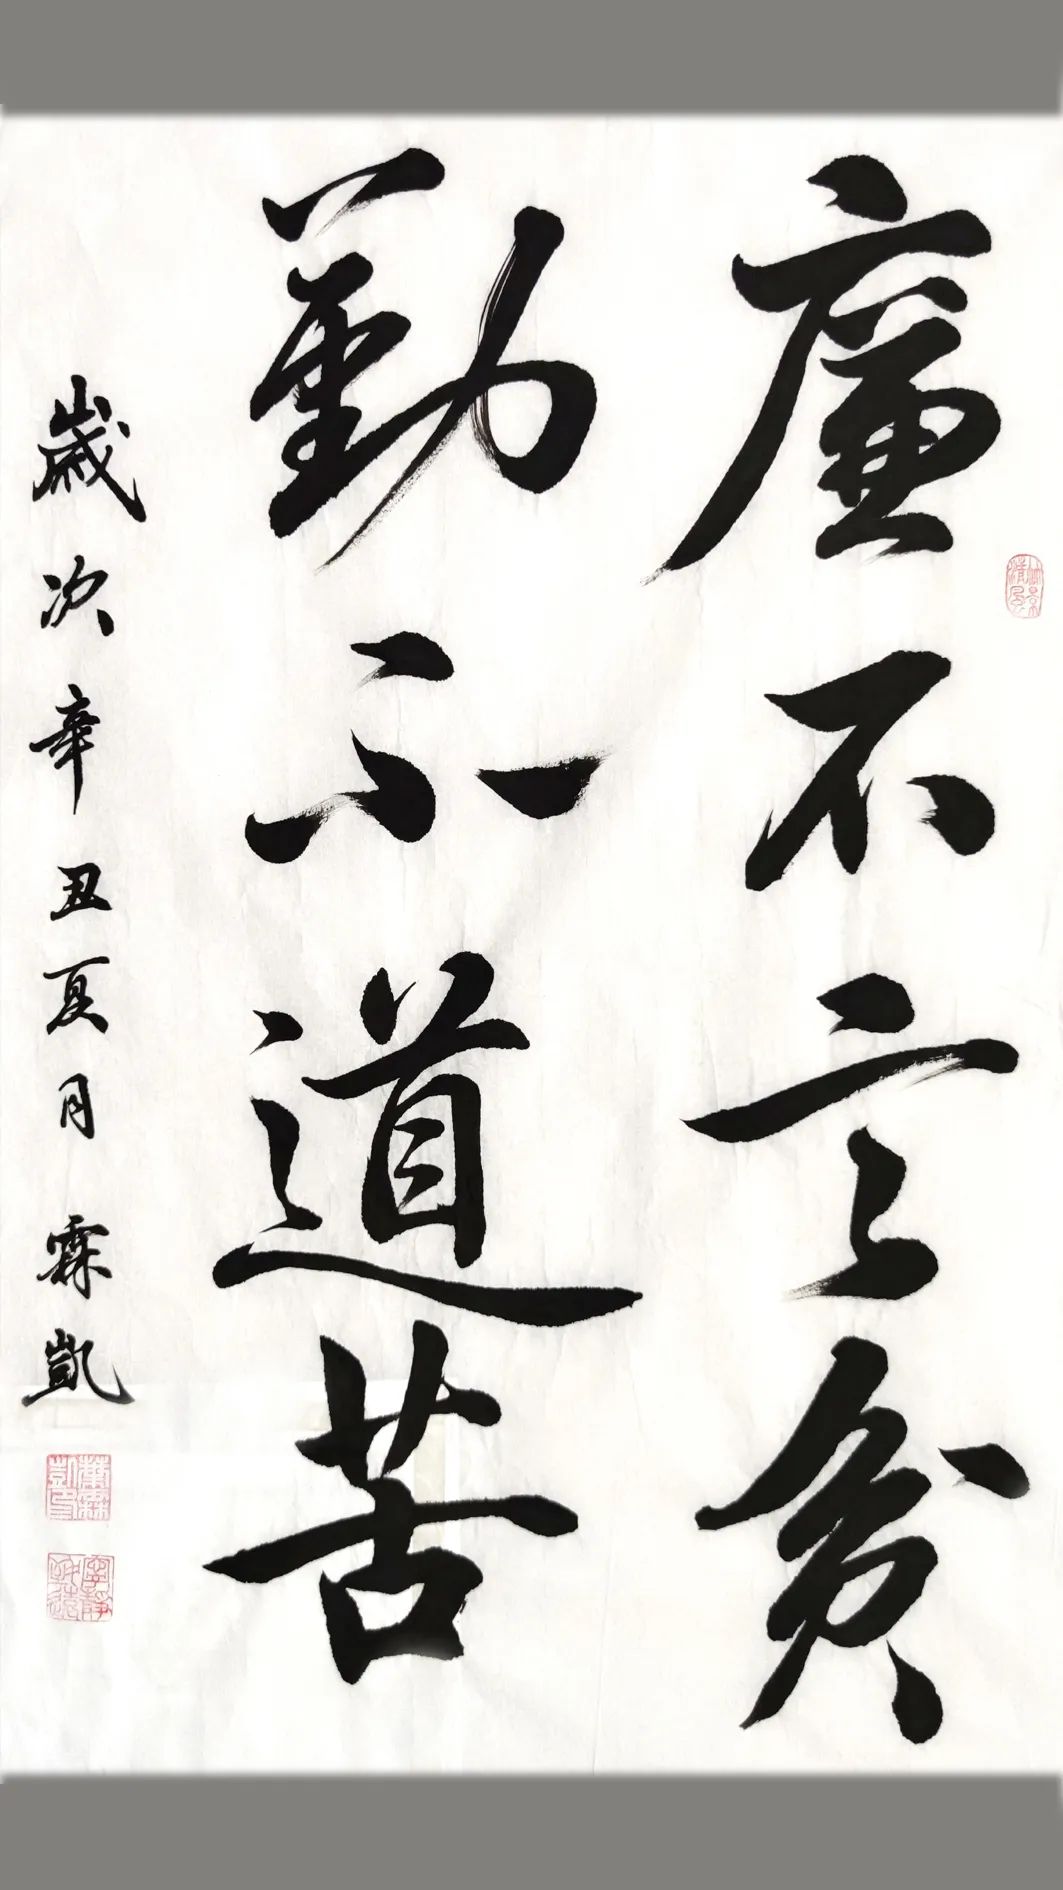 廉不言貧
勤不道苦
歲次辛丑夏月霖凱
寧靜致遠